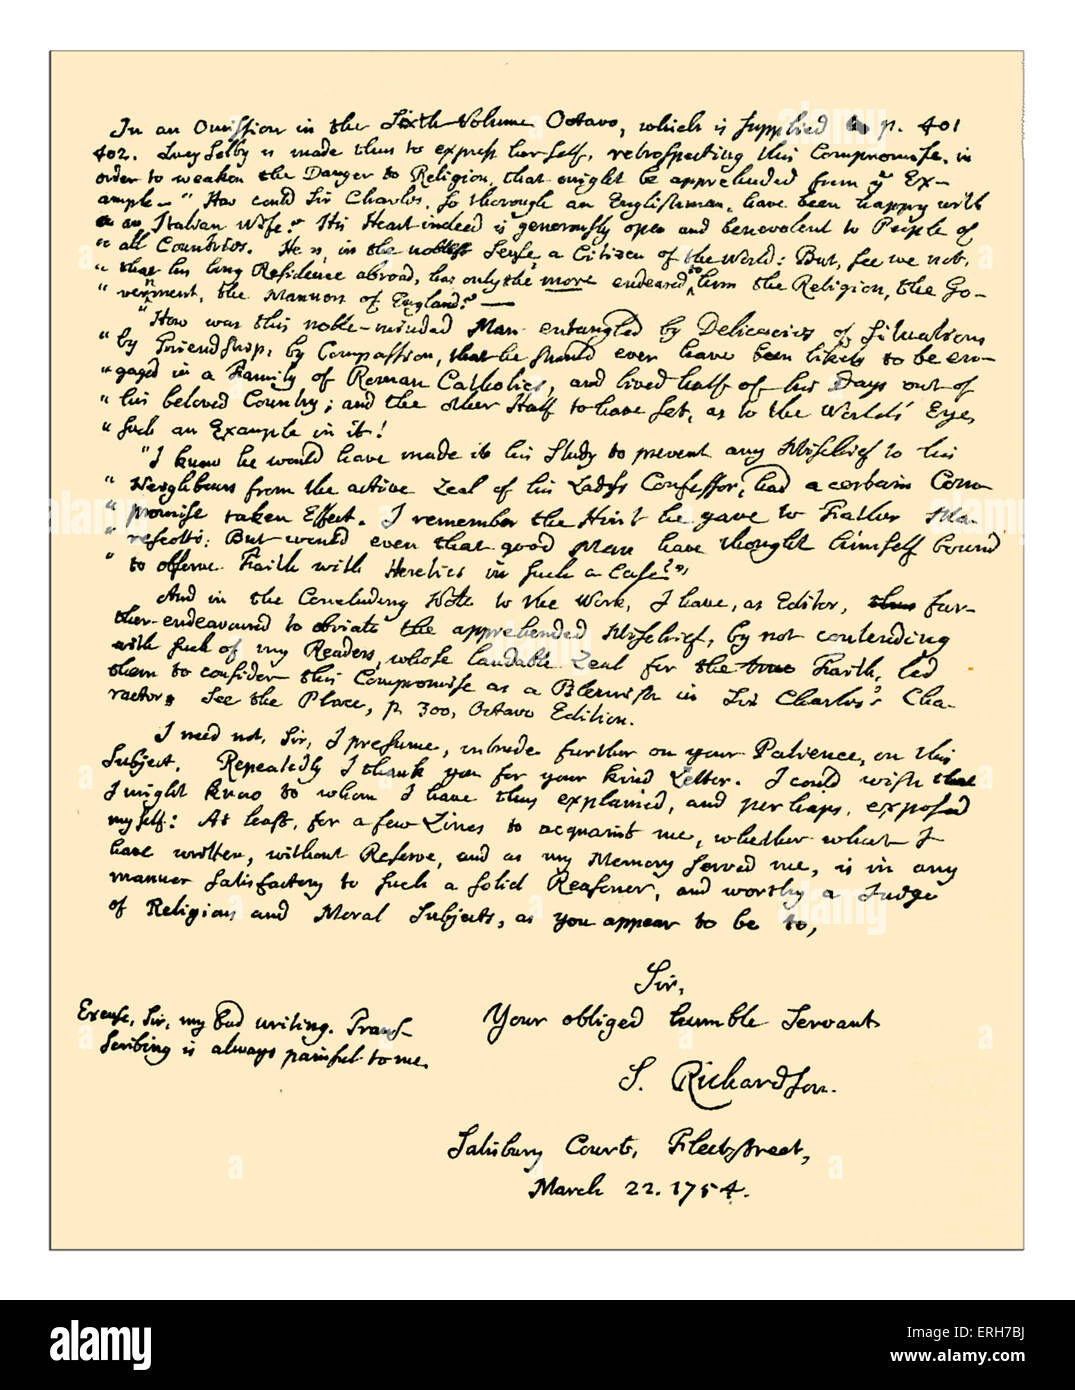 In an Omission in the Sixth Volume Octavo, which is supplied p. 401
402. Lucy Selby is made thus to express herself, retrospecting this Compromise, in
order to weaken the Danger to Religion, that might be apprehended from yͤ Ex-
ample— "How could Sir Charles, so thorough an Englishman, have been happy with
" an Italian Wife? His Heart indeed is generously open and benevolent to People of
" all Countries. He is, in the noblest Sense, a Citizen of the World: But, see we not,
" that his long Residence abroad, has only the more endeared to him the Religion, the Go-
" vernment, the Manners of England? —
"How was this noble-minded Man entangled by Delicacies of Situation
" by Friendship, by Compassion, that he should ever have been likely to be en-
" gaged in a Family of Roman Catholics, and lived half of his Days out of
" his beloved Country; and the other Half to have set, as to the World's Eye,
" such an Example in it!
"I know he would have made it his Study to prevent any Mischief to his
" Neighbours from the active Zeal of his Lady's Confessor, had a certain Com-
" promise taken Effect. I remember the Hint he gave to Father Ma-
" rescotti: But would even that good Man have thought himself bound
" to observe Faith with Heretics in such a Case?"
And in the Concluding Note to the Work, I have, as Editor, thus fur-
ther endeavoured to obviate the apprehended Mischief, by not contending
with such of my Readers, whose laudable Zeal for the true Faith, led
them to consider this Compromise as a Blemish in Sir Charles's Cha-
racter. See the Place, p. 300, Octavo Edition.
I need not, Sir, I presume, intrude further on your Patience, on this
Subject. Repeatedly I thank you for your kind Letter. I could wish that
I might know to whom I have thus explained, and perhaps, exposed
myself: At least, for a few Lines to acquaint me, whether what I
have written, without Reserve, and as my Memory served me, is in any
manner satisfactory to such a solid Reasoner, and worthy a Judge
of Religious and Moral Subjects, as you appear to be to,
Sir,
Your obliged humble Servant
S. Richardson.
Excuse, Sir, my bad writing. Trans-
scribing is always painful to me.
Salisbury Court, Fleetstreet,
March 22. 1754.
alamy
Image ID: ERH7BJ
www.alamy.com